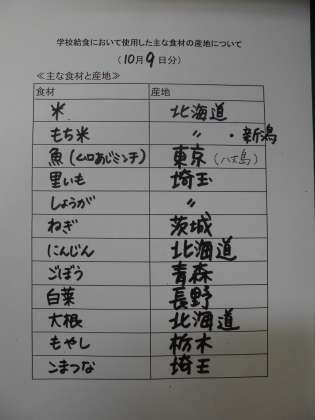 学校給食において使用した主な食材の産地について
(10月9日分)
≪主な食材と産地≫
食材 産地
米 北海道
もち米 〃 ・新潟
魚(ムロあじミンチ) 東京(八丈島)
里いも 埼玉
しょうが 〃
ねぎ 茨城
にんじん 北海道
ごぼう 青森
白菜 長野
大根 北海道
もやし 栃木
こまつな 埼玉